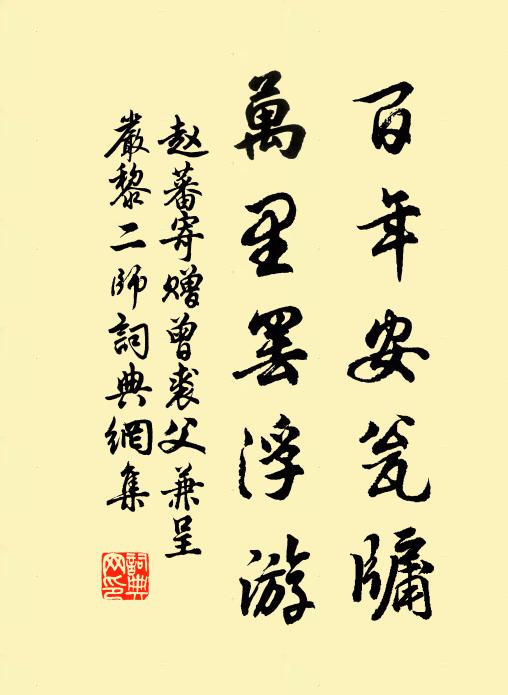 百年安瓮牖
萬里罢浮游
赵蕃寄赠曾裘父兼呈
嚴黎二師詞典網集
詞典網印